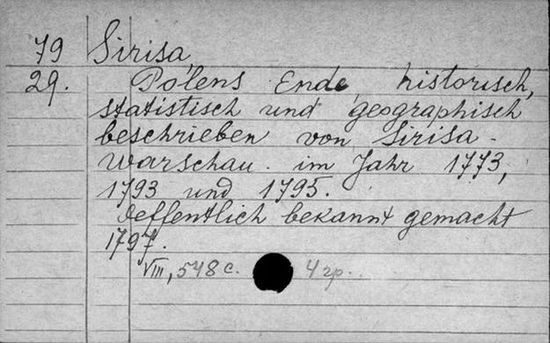 79 Sirisa
29. Polens Ende, historisch,
statistisch und geographisch
beschrieben von Sirisa -
Warschau. im Jahr 1773,
1793 und 1795.
Oeffentlich bekannt gemacht
1797.
VIII, 548 с. 4 гр.